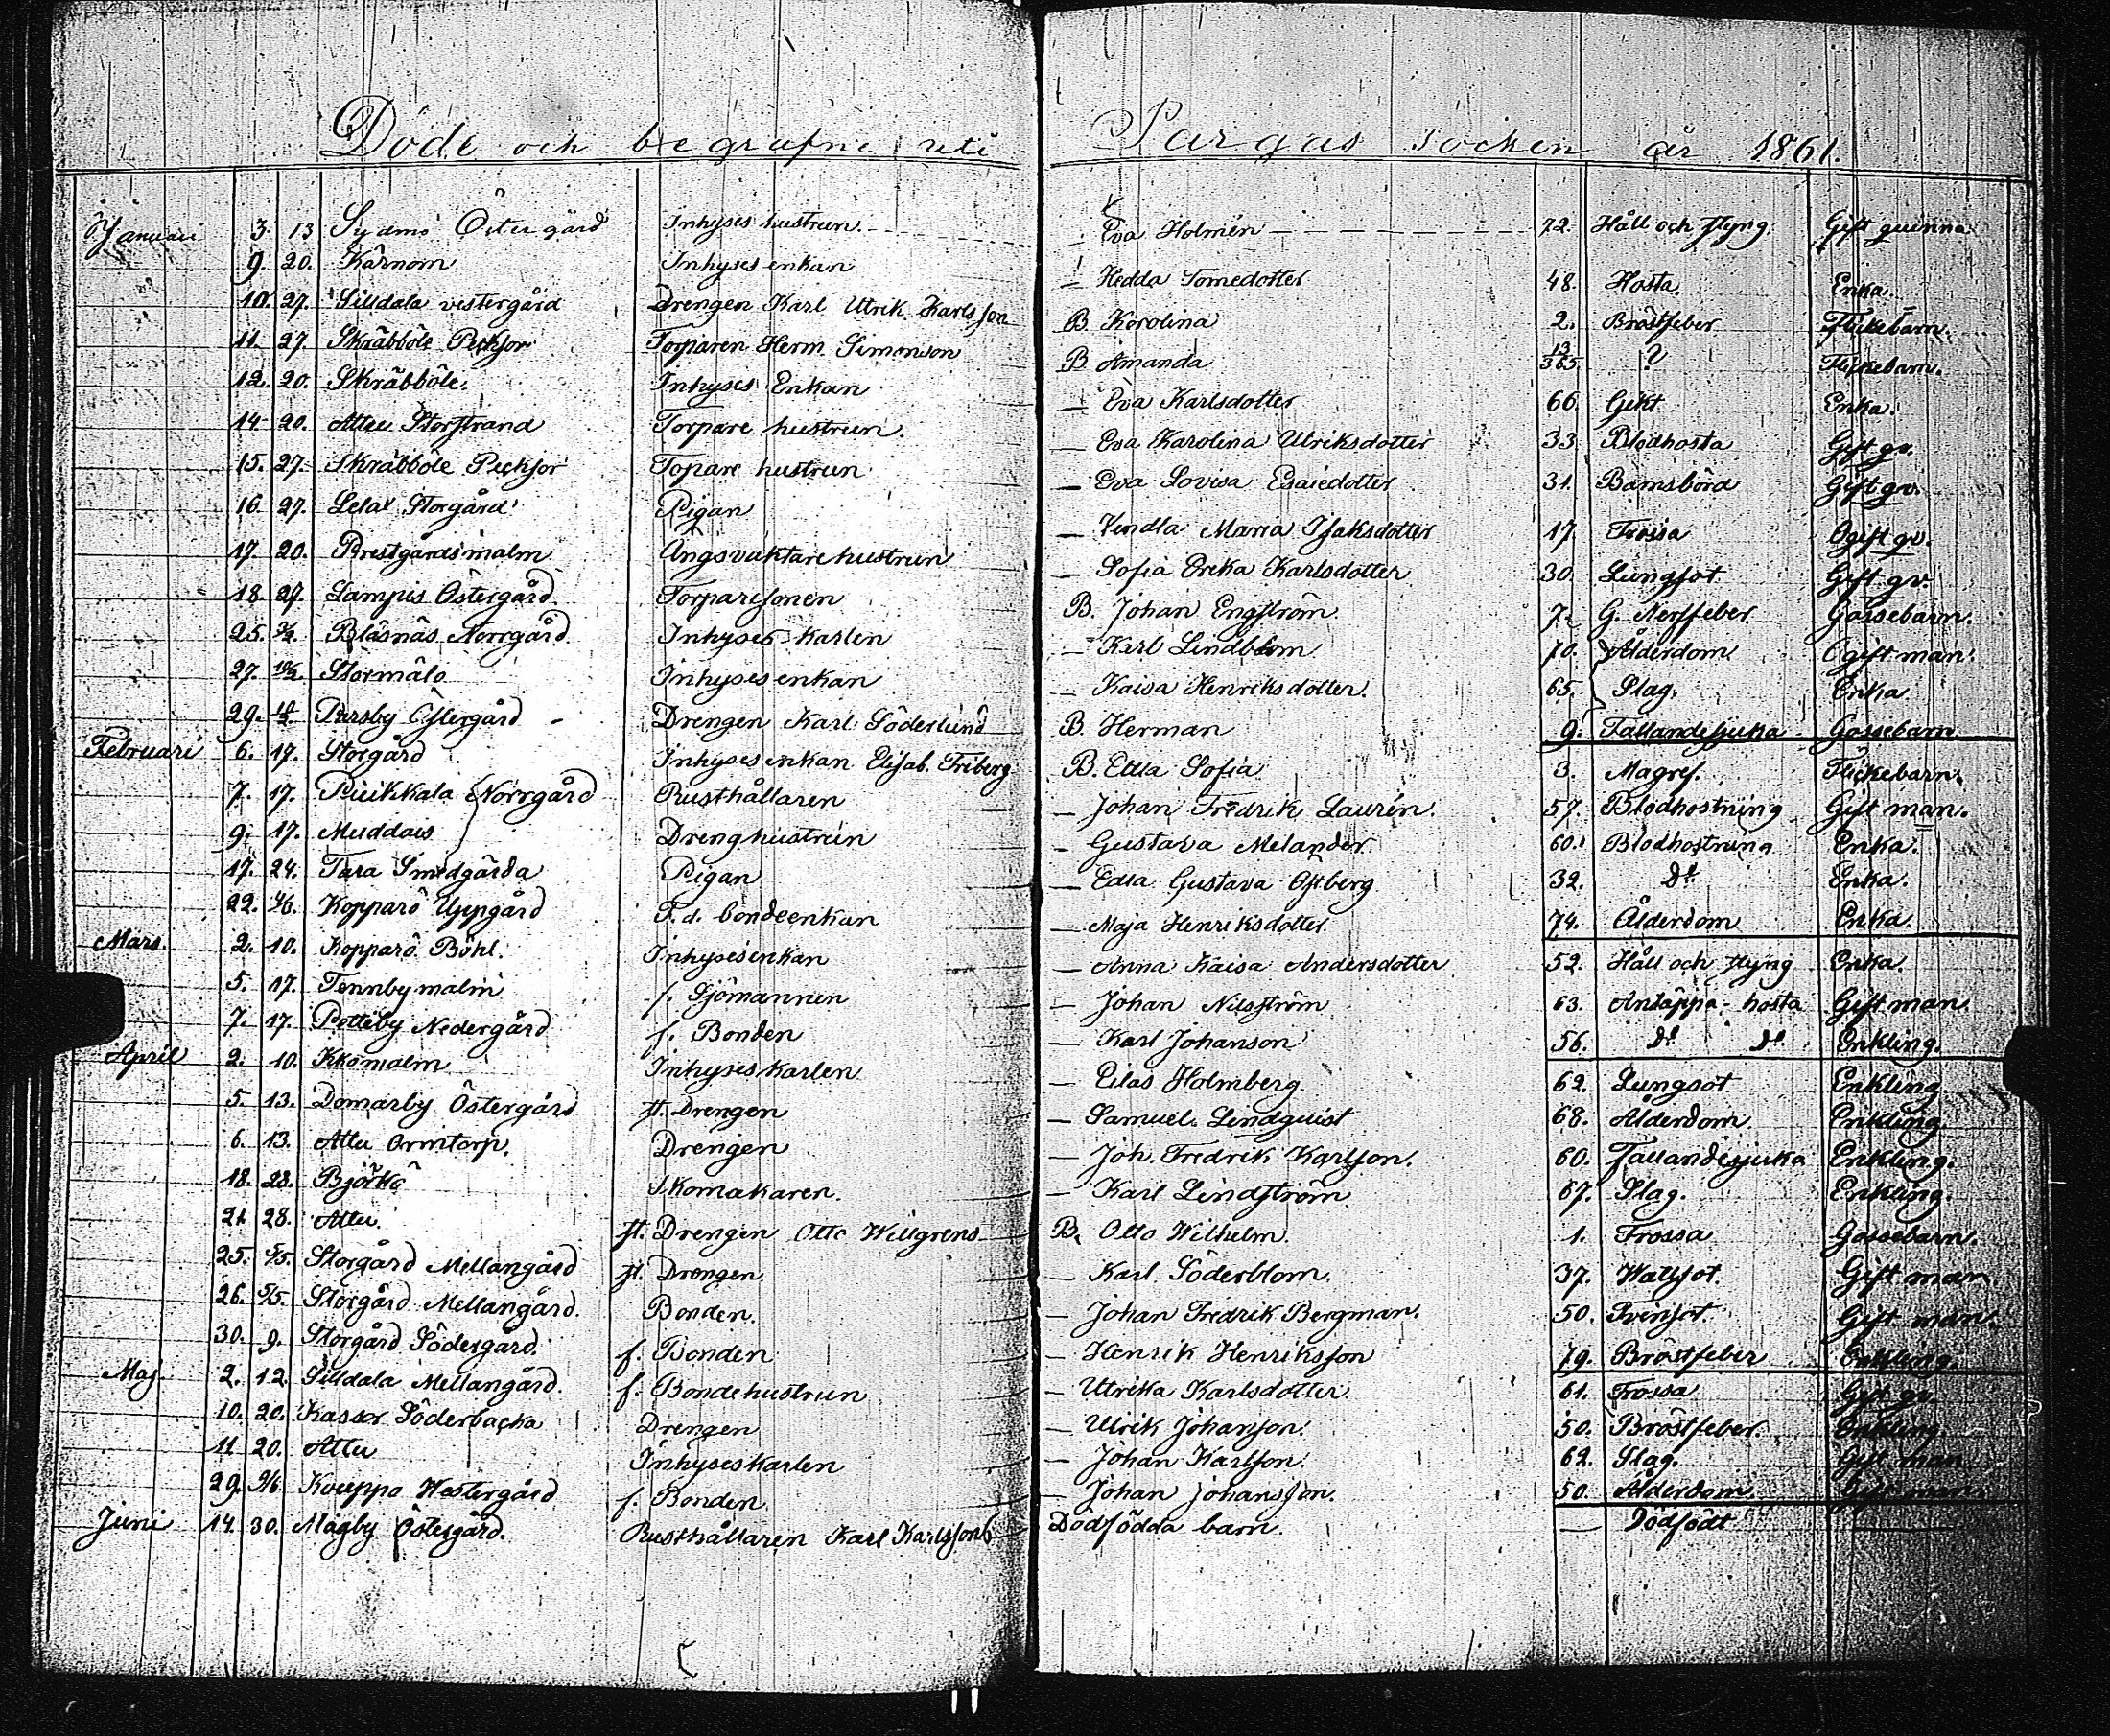 Döde och begrafne uti Pargas socken år 1861.
Januari 3. 13 Sydmo Östergård Inhyses hustrun — Eva Holmén 72. Håll och styng Gift quinna
9. 20. Kårnom Inhyses enkan — Hedda Tomedotter 48. Hosta. Enka.
10. 27. Silldala vestergård Drengen Karl Ulrik Karlsson B. Korolina 2. Bröstfeber Flickebarn.
11. 27. Skräbböle Peckjor Torparen Herm. Simonson B. Amanda 13/365 ? Flickebarn.
12. 20. Skräbböle. Inhyses Enkan — Eva Karlsdotter 66. Gikt Enka.
14. 20. Attu Storstrand Torpare hustrun. — Eva Karolina Ulriksdotter 33 Blodhosta Gift qv.
15. 27. Skräbböle Peckjor Topare hustrun — Eva Lovisa Esaiedotter 31. Barnsbörd Gift qv.
16. 27. Lelax Storgård Pigan — Vendla Maria Isaksdotter 17. Frossa Ogift qv.
17. 20. Prestgårdsmalm Ångsvaktare hustrun — Sofia Erika Karlsdotter 30. Lungsot Gift qv.
18. 27. Lampis Östergård Torparesonen B. Johan Engström. 7. G. Nerffeber Gossebarn.
25. 3/2. Bläsnäs Norrgård Inhyses karlen — Karl Lindblom 70. Ålderdom. Ogift man.
27. 10/2. Stormälo Inhyses enkan — Kaisa Henriksdotter. 65. Slag. Enka
29. Parsby Östergård - Drengen Karl Söderlund B. Herman 9. Fallandesjuka Gossebarn
Februari 6. 17. Storgård Inhyses enkan Elisab. Friberg B. Edla Sofia 3. Magref. Flickebarn.
7. 17. Piukkala Norrgård Rusthållaren — Johan Fredrik Laurén. 57. Blodhostning Gift man.
9. 17. Muddais Drenghustrun — Gustava Melander. 60. Blodhostning Enka.
17. 24. Tara Smedgårda Pigan — Edla Gustava Östberg 32. do Enka.
22. Kopparö Uppgård F.d. bondeenkan — Maja Henriksdotter. 74. Ålderdom Enka.
Mars. 2. 10. Kopparö Böhl. Inhysesenkan — Anna Kaisa Andersdotter 52. Håll och styng Enka.
5. 17. Tennbymalm f. Sjömannen — Johan Nilsström 63. Andtäppa-hosta Gift man.
7. 17. Petteby Nedergård f. Bonden — Karl Johanson 56. do do Enkling.
April 2. 10. Kkomalm Inhyses karlen — Elias Holmberg. 62. Lungsot Enkling
5. 13. Domarby Östergård ft. Drengen — Samuel Lindquist 68. Ålderdom. Enkling.
6. 13. Attu Ormtorp. Drengen — Joh. Fredrik Karlson. 60. Fallandesjuka Enkling.
18. 28. Björkö Skomakaren. — Karl Lindström 67. Slag. Enkling.
21. 28. Attu. ft. Drengen Otto Willgrens B. Otto Wilhelm. 1. Frossa Gossebarn.
25. 5/5. Storgård Mellangård ft. Drengen — Karl Söderblom. 37. Wattsot Gift man
26. 5/5. Storgård Mellangård. Bonden. — Johan Fredrik Bergman. 50. Tvinsot. Gift man.
30. 9. Storgård Södergård. f. Bonden — Henrik Henriksson 79. Bröstfeber Enkling.
Maj. 2. 12. Silldala Mellangård. f. Bondehustrun — Ulrika Karlsdotter 61. Frossa Gift qv.
10. 20. Kassor Söderbacka Drengen — Ulrik Johanson. 50. Bröstfeber. Enkling
11. 20. Attu Inhyseskarlen — Johan Karlson. 62. Slag. Gift man
29. 2/6. Kouppo Westergård f. Bonden. — Johan Johansson. 50. Ålderdom. Gift man.
Juni 14. 30. Mågby Östergård. Rusthållaren Karl Karlssons Dödfödda barn. — Dödfödt